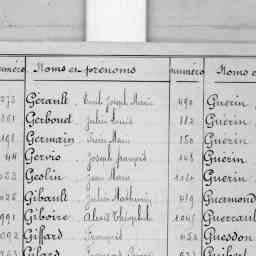 numéro Noms et prénoms numéro Noms e
273 Gérault Emile Joseph Marie 490 Guérin
361 Gerbouet Jules Louis 882 Guérin
198 Germain Pierre Marie 150 Guérin
44 Gervio Joseph françois 148 Guérin
Geslin Jean Marie Guérin
Gibault Jules Mathurin 219 Guermond
991 Giboire Alexis Théophile 1045 Guerrault
092 Giffard François 424 Guesdon
Gilard François Guibert